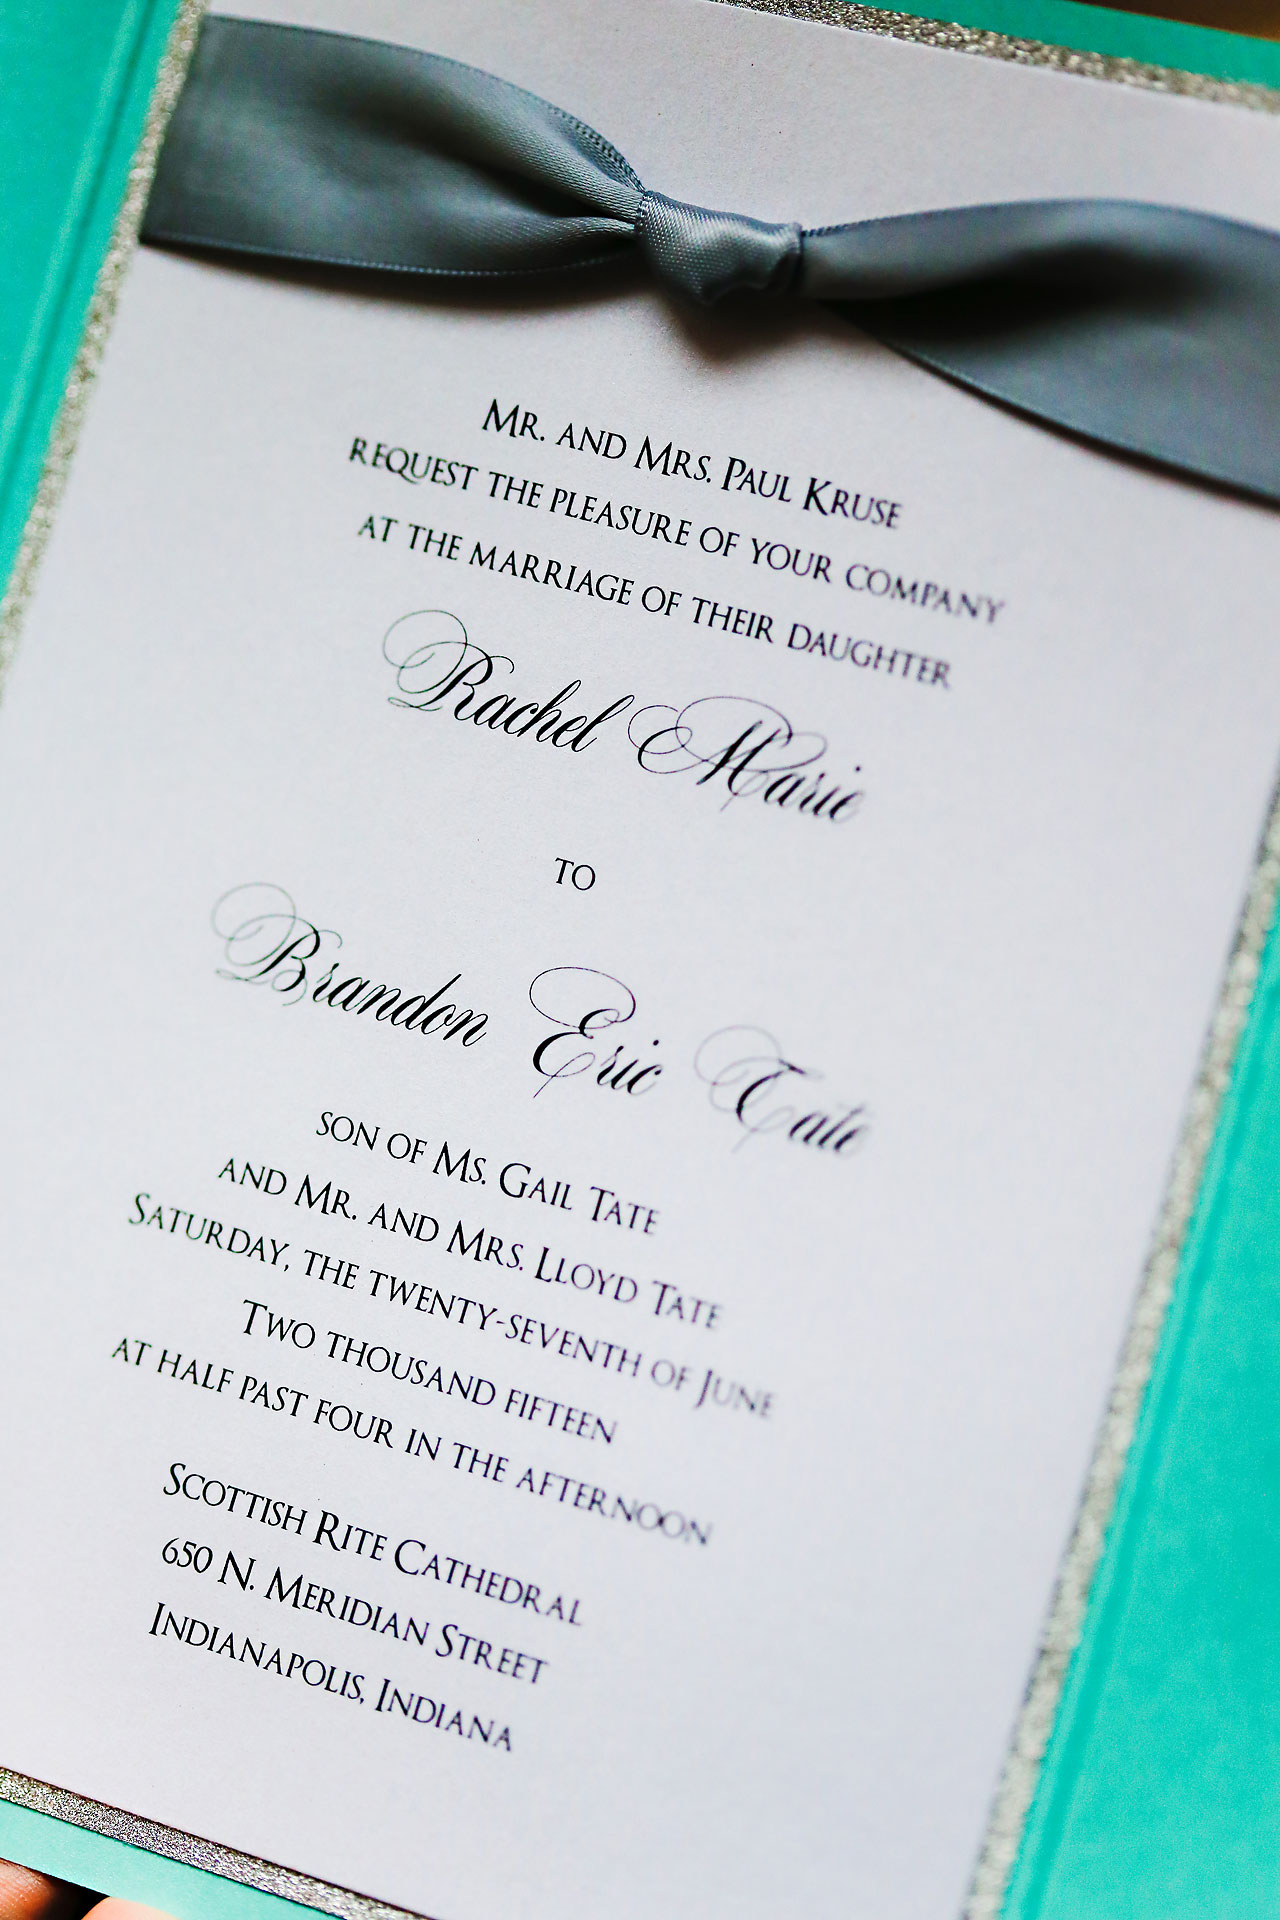 Mr. and Mrs. Paul Kruse
request the pleasure of your company
at the marriage of their daughter
Rachel Marie
to
Brandon Eric Tate
son of Ms. Gail Tate
and Mr. and Mrs. Lloyd Tate
Saturday, the twenty-seventh of June
Two thousand fifteen
at half past four in the afternoon
Scottish Rite Cathedral
650 N. Meridian Street
Indianapolis, Indiana